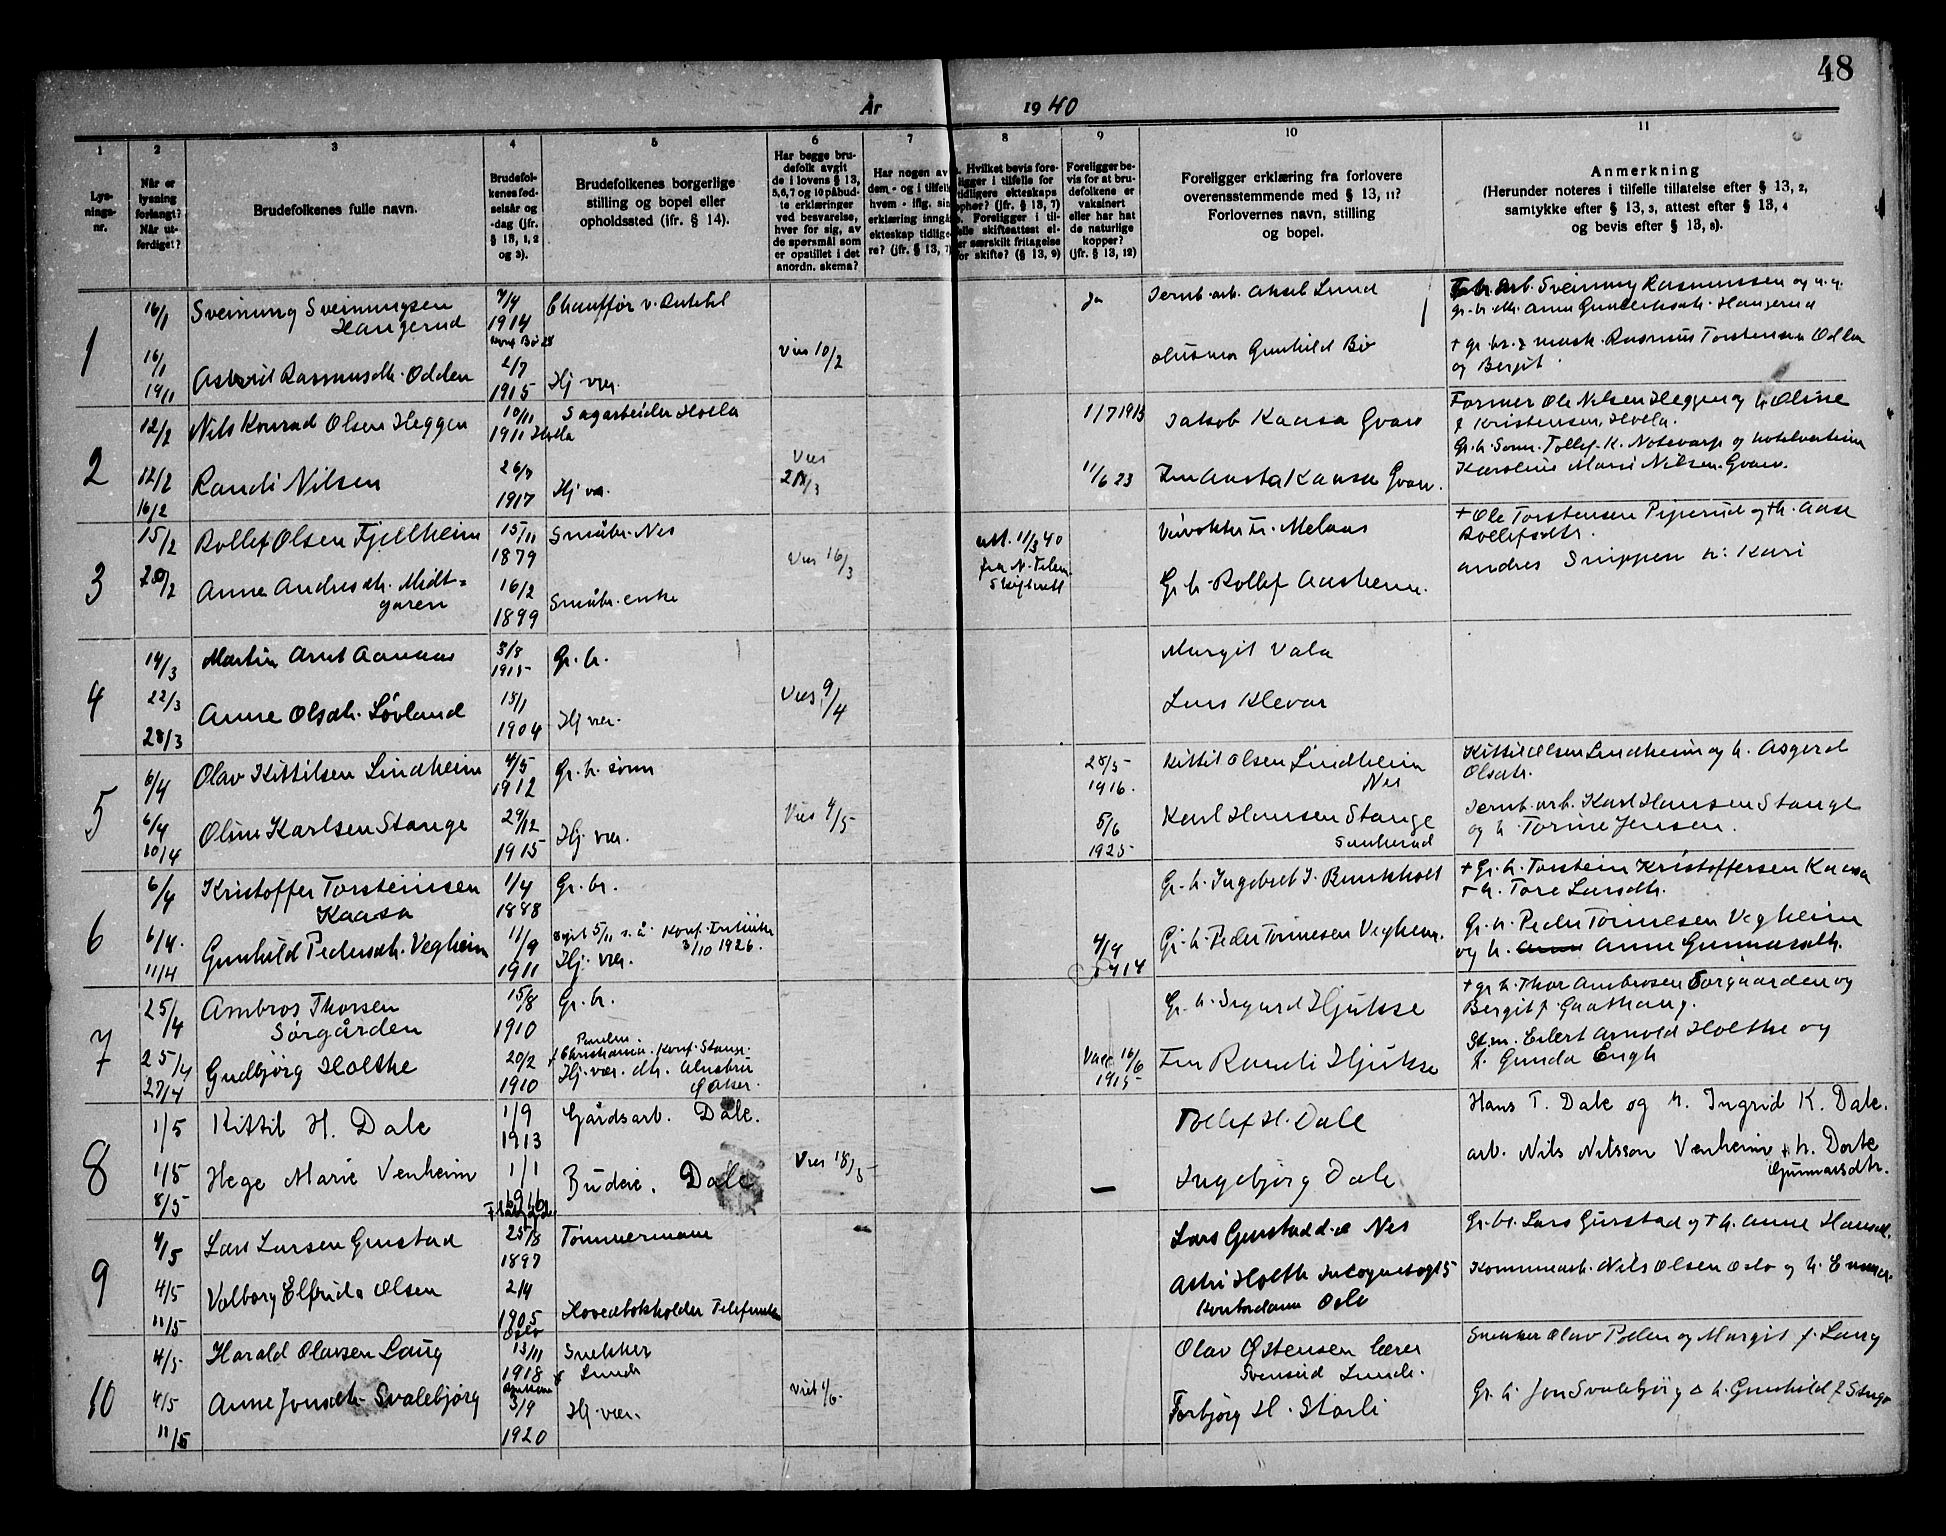 48
År 1940
1 2 3 4 5 6 7 8 9 10 11
Lysnings-nr.
Når er lysning forlangt? Når utferdiget?
Brudefolkenes fulle navn.
Brudefolkenes fødselsår og -dag (jfr. § 13, 1, 2 og 3).
Brudefolkenes borgerlige stilling og bopel eller opholdssted (ifr. § 14).
Har begge brudefolk avgit de i lovens § 13, 5, 6, 7 og 10 påbudte erklæringer ved besvarelse, hver for sig, av de spørsmål som er opstillet i det anordn. skema?
Har nogen av dem - og i tilfelle hvem - iflg. sin erklæring inngått ekteskap tidligere? (jfr. § 13, 7)
Hvilket bevis foreligger i tilfelle for tidligere ekteskaps ophør? (jfr. § 13, 7) Foreligger i tilfelle skifteattest eller særskilt fritagelse for skifte? (§ 13, 9)
Foreligger bevis for at brudefolkene er vaksinert eller har hat de naturlige kopper? (jfr. § 13, 12)
Foreligger erklæring fra forlovere overensstemmende med § 13, 11? Forlovernes navn, stilling og bopel.
Anmerkning (Herunder noteres i tilfelle tillatelse efter § 13, 2, samtykke efter § 13, 3, attest efter § 13, 4 og bevis efter § 13, 8).
1
16/1 Sveinung Sveinungsen Haugerud 1914 Chauffør v.
ja Jernb. arb. Aksel Lund
arb. Sveinung Rasmussen og
gr. br. dtr. Anne Gundersdtr. Haugerud
16/1 19/1 Astrid Rasmusdtr. Odden 2/7 1915 Hj. vær.
Viet 10/2
Gunhild Bø
+ gr. br. & mask. Rasmus Torstensen Odden
og Bergit
2
12/2 Nils Konrad Olsen Heggen 10/11 1911 Holla Sagarbeider Holla
1/7 1913 Jakob Kaasa Gvarv
Former Ole Nilsen Heggen og h. Oline
f. Kristensen, Holla.
12/2 16/2 Randi Nilsen 26/7 1917 Hj. v.
11/6 23 Kaasa Gvarv.
Gr. br. Sønn. Tollef K. Notevarp og hotelvertinne
Karoline Marie Nilsen Gvarv.
3
15/2 Rollef Olsen Fjellheim 15/11 1879 Småbr. Nes
Viet 16/3
att. 11/3 40 fra N. Telem. Skifterett
Melaas
+ Ole Torstensen Piperud og h. Aase
Rollefsdtr.
20/2 Anne Andresdtr. Midtgaren 16/2 1899 Småbr. enke
Gr. br. Rollef Aasheim.
Andres Snippen h. Kari
4
14/3 Martin Arnt Aanaas 3/8 1915 Gr. br.
Margit Vala
22/3 28/3 Anne Olsdtr. Løvland 13/1 1904 Hj. vær.
Viet 9/4
Lars Klevar
5
6/4 Olav Kittilsen Lindheim 4/5 1912 Gr. br. sønn
28/5 1916. Kittil Olsen Lindheim Nes
Kittil Olsen Lindheim og h. Asgerd
Olsdtr.
6/4 10/4 Oline Karlsen Stange 29/12 1915 Hj. vær.
Viet 4/5
5/6 1925 Karl Hansen Stange Sauherad
Jernb. arb. Karl Hansen Stange
og h. Torine Jensen.
6
6/4 Kristoffer Torsteinsen Kaasa 1/4 1888 Gr. br.
Gr. br. Ingebret J. Bunkholt
+ Gr. br. Torstein Kristoffersen Kaasa
+ h. Tore Larsdtr.
6/4. 11/4 Gunhild Pedersdtr. Vegheim 11/9 1911 Hj. vær.
5/11 s. å. Konf. 3/10 1926.
Gr. br. Peder Tovnesen Vegheim.
Gr. br. Peder Tovnesen Vegheim
og h. Anne Gunnarsdtr.
7
25/4 Ambros Thorsen Sørgården 15/8 1910 Gr. br.
Gr. br. Sigurd Hjukse
+ gr. br. Thor Ambrosen Sørgaarden og
Bergit f. Gaathaug.
25/4 27/4 Gudbjørg Holthe 20/2 1910 f. Christiania. Konf. Stange. Hj. vær.
Vacc. 16/6 1915 Fru Randi Hjukse
St.m. Eilert Arnold Holthe og
f. Gunda Engh
8
1/5 Kittil H. Dale 1/9 1913 Gårdsarb. Dale.
Tollef H. Dale
Hans T. Dale og h. Ingrid K. Dale.
1/5 8/5 Hege Marie Venheim 1/1 Budeie. Dale
Viet 18/5
— Ingebjørg Dale
arb. Nils Nilsson Venheim + h. Dorte
Gunnarsdtr.
9
4/5 Lars Larsen Gurstad 25/8 1897 Tømmermann
Lars Gurstad d.e. Nes
Gr. br. Lars Gurstad og + h. Anne Hansdt.
4/5 11/5 Valborg Elfrida Olsen 2/4 1905 Oslo Hovedbokholder
Astri Holth Oslo
Nils Olsen Oslo og h. Emma
10
4/5 Harald Olavsen Laug 13/11 1918 Snekker Lunde
Olav Østensen lærer
Svenseid Lunde.
Snekker Olav og Margit f. Laug
4/5 11/5 Anne Jonsdtr. Svalebjørg 3/9 1920 Hj. vær.
Viet 1/6.
Torbjørg H. Storli
Gr. br. Jon Svalebjørg & h. Gunhild f.